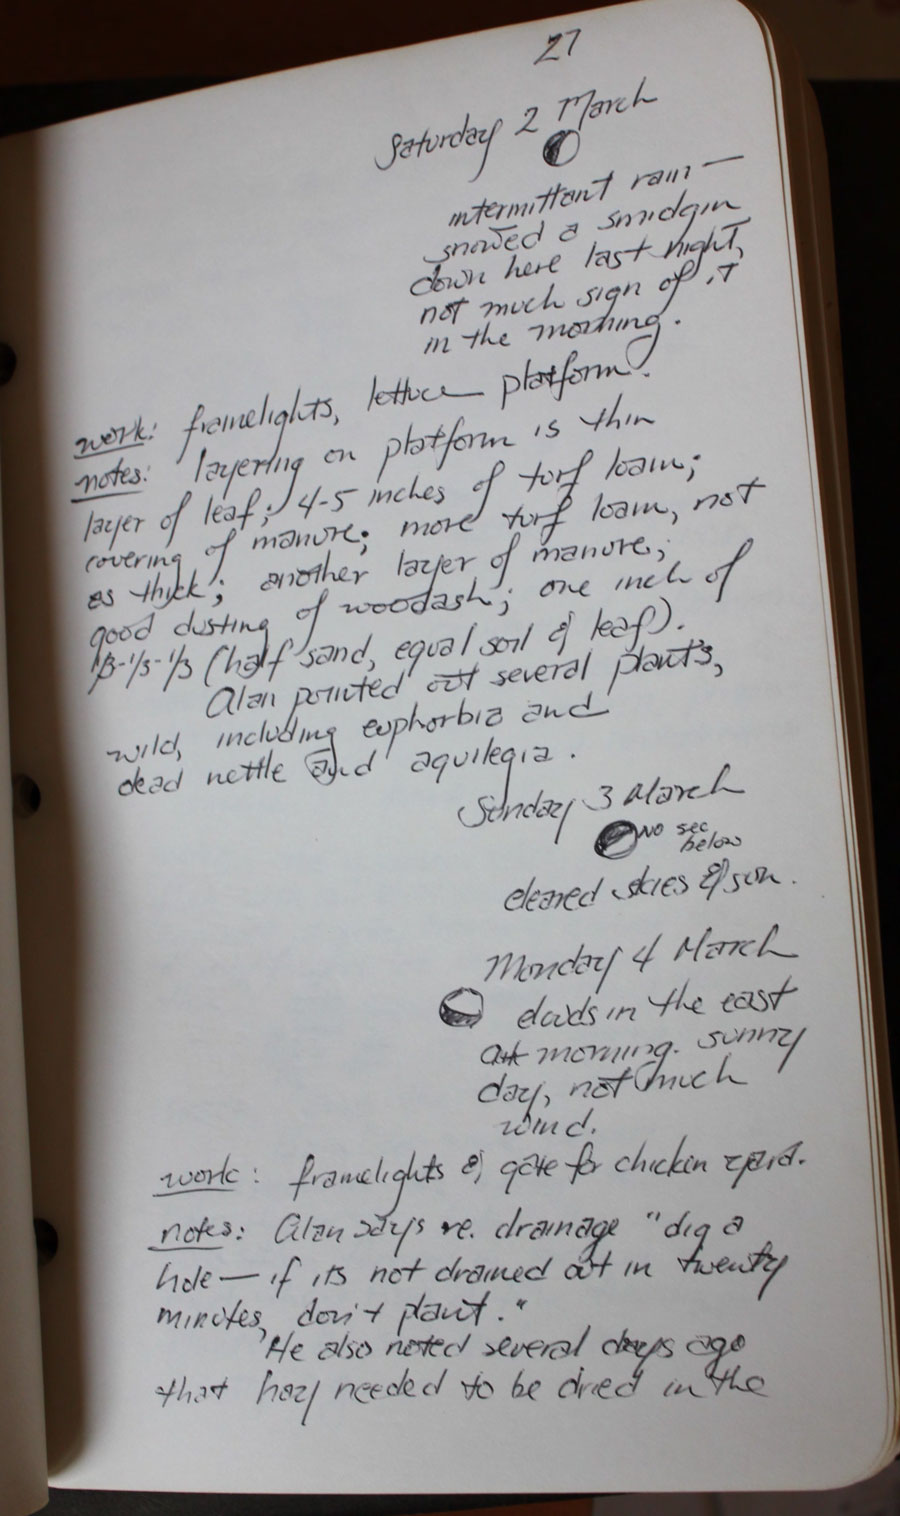 27
Saturday 2 March
intermittant rain —
snowed a smidgin
down here last night,
not much sign of it
in the morning.
work: framelights, lettuce platform.
notes: layering on platform is thin
layer of leaf; 4-5 inches of turf loam;
covering of manure; more turf loam, not
as thick; another layer of manure;
good dusting of woodash; one inch of
1/3-1/3-1/3 (half sand, equal soil & leaf).
Alan pointed out several plants,
wild, including euphorbia and
dead nettle and aquilegia.
Sunday 3 March
NO see
below
cleared skies & sun.
Monday 4 March
clouds in the east
at morning. sunny
day, not much
wind.
work: framelights & gate for chicken yard.
notes: Alan says re. drainage "dig a
hole — if its not drained out in twenty
minutes, don't plant."
He also noted several days ago
that hay needed to be dried in the